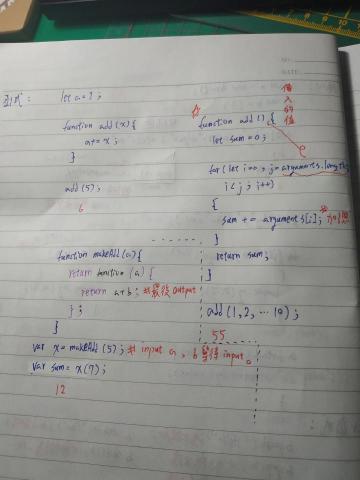 函式: let a = 1 ;
function add (x) {
a += x ;
}
add (5) ;
6
function makeAdd (a) {
return function (a) {
return a + b ; # 最後 output
} ;
}
var x = makeAdd (5) ; # input a , b 等待 input 。
var sum = x (7) ;
12
☆
function add () {
let sum = 0 ;
for ( let i = 0 , j = arguments.length
i < j ; i++)
{
sum += arguments [i] ;
}
return sum ;
}
add (1, 2, ... 10) ;
55
入的值